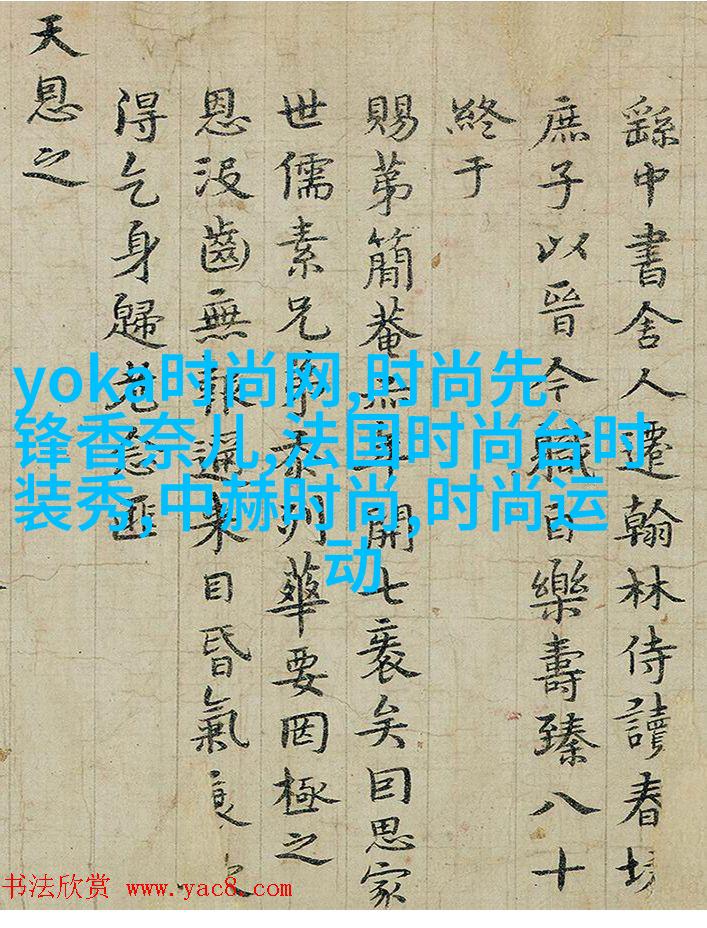 繇中書舍人遷翰林侍讀春坊
庶子以晉今職百樂壽臻八十
終于
賜苐簡菴年開七袠矣囙思家
世儒素兄列華要罔極之
恩沒齒無報邇来目昏氣衰
得乞身歸老
天恩之
yoka时尚网,时尚先
锋香奈儿,法国时尚台时
装秀,中赫时尚,时尚运
动
书法欣赏 www.yac8.com